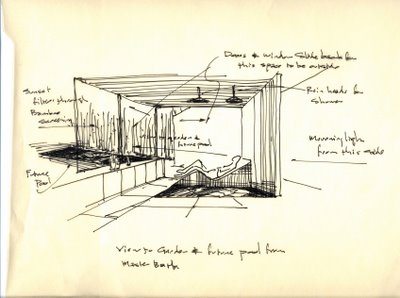 Doors & window slide back for
this space to be outside
Sunset
filters through
Bamboo
screening
Rain heads for
shower
garden &
future pool
Morning light
from this side
Future
Pool
View to Garden & future pool from
Master Bath